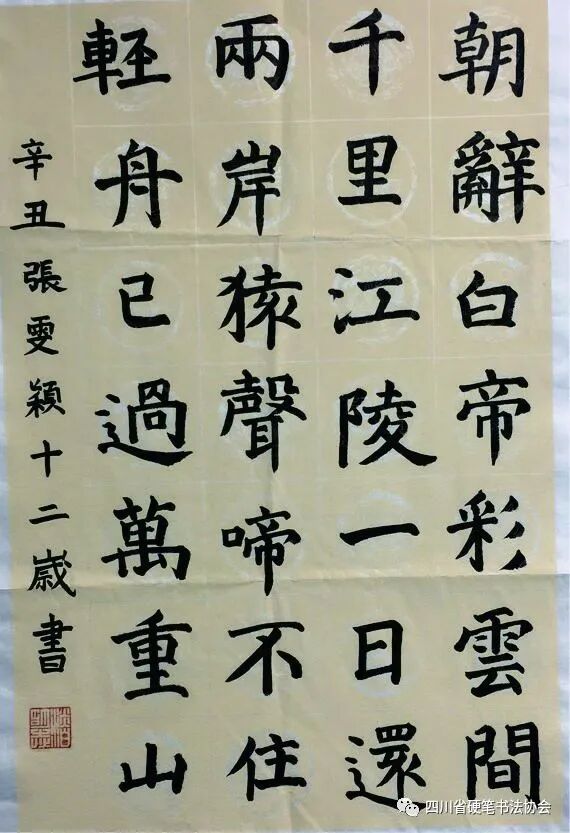 朝辭白帝彩雲間
千里江陵一日還
兩岸猿聲啼不住
輕舟已過萬重山
辛丑張雯穎十二歲書
四川省硬笔书法协会